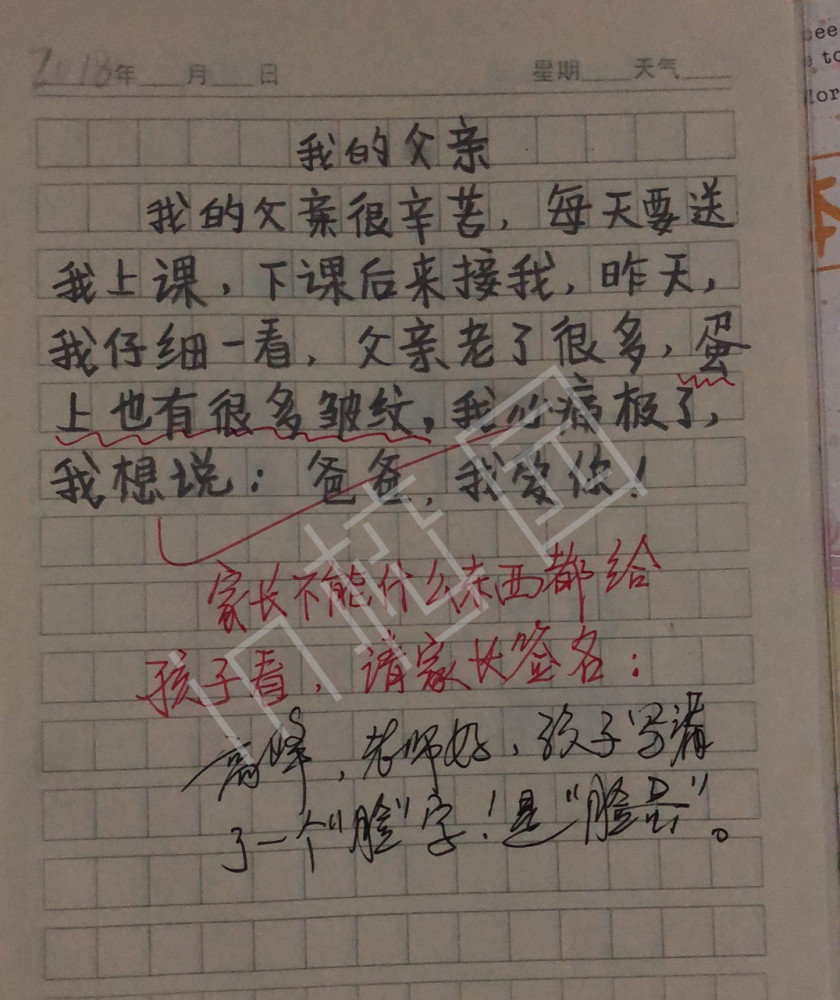 2018年 月 日 星期 天气
我的父亲
我的父亲很辛苦，每天要送
我上课，下课后来接我，昨天，
我仔细一看，父亲老了很多，蛋
上也有很多皱纹，我心痛极了，
我想说：爸爸，我爱你！
家长不能什么东西都给
孩子看，请家长签名：
高峰，老师好，孩子写漏
了一个“脸”字！是“脸蛋”。